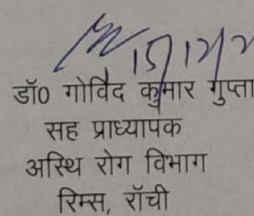 15/12/2
डॉ0 गोविंद कुमार गुप्ता
सह प्राध्यापक
अस्थि रोग विभाग
रिम्स, राँची